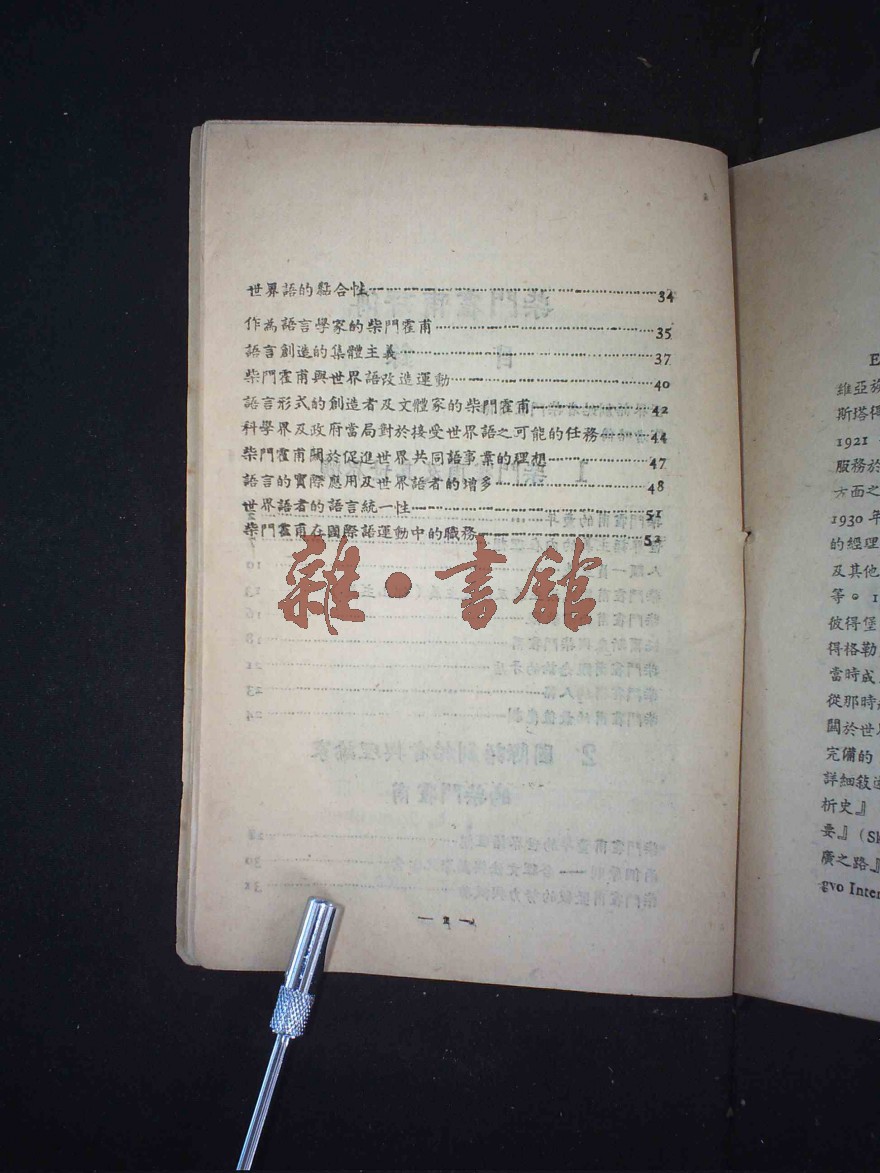 世界語的黏合性 34
作為語言學家的柴門霍甫 35
語言創造的集體主義 37
柴門霍甫與世界語改進運動 40
語言形式的創造者及文體家的柴門霍甫 42
科學界及政府當局對於接受世界語之可能的任務 44
柴門霍甫關於促進世界共同語事業的理想 47
語言的實際應用及世界語者的增多 48
世界語者的語言統一性 51
柴門霍甫在國際語運動中的職務 52
雜·書館
— 2 —
E
維亞族
斯塔得
1921
服務於
方面之
1930年
的經理
及其他
等。1
彼得堡
得格勒
當時成
從那時
關於世
完備的
詳細敍述
析史』
要』(Sk
廣之路』
gvo Inter